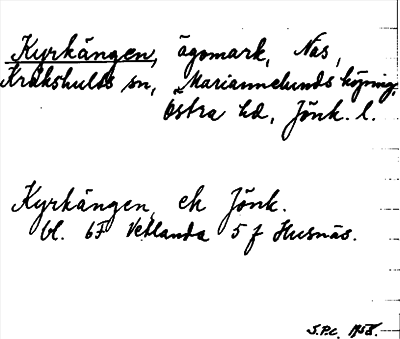 Kyrkängen, ägomark, Näs,
Kråkshults sn, Mariannelunds köping,
Östra hd, Jönk. l.
Kyrkängen ek Jönk.
bl. 67 Vetlanda 5 f Husnäs.
S.P.C. 1958.